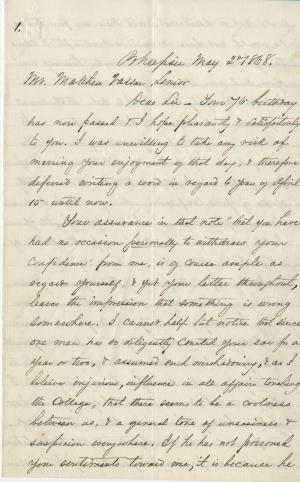 1.
Po'keepsie May 2d 1868.
Mr. Matthew Vassar, Senior
Dear Sir - Your 76 birthday
has now passed & I hope pleasantly & satisfactorily
to you. I was unwilling to take any risk of
marring your enjoyment of that day, & therefore
deferred writing a word in regard to yours of April
15 until now.
Your assurance in that note "that you have
had no occasion personally to withdraw your
confidence" from me, is of course ample as
regards yourself, & yet your letter throughout,
leaves the impression that something is wrong
somewhere. I cannot help but notice that since
one man has so diligently courted your ear for a
year or two, & assumed such overshadowing, & as I
believe injurious, influence in all affairs touching
the College, that there seems to be a coolness
between us, & a general tone of uneasiness &
suspicion everywhere. If he has not poisoned
your sentiments toward me, it is because he